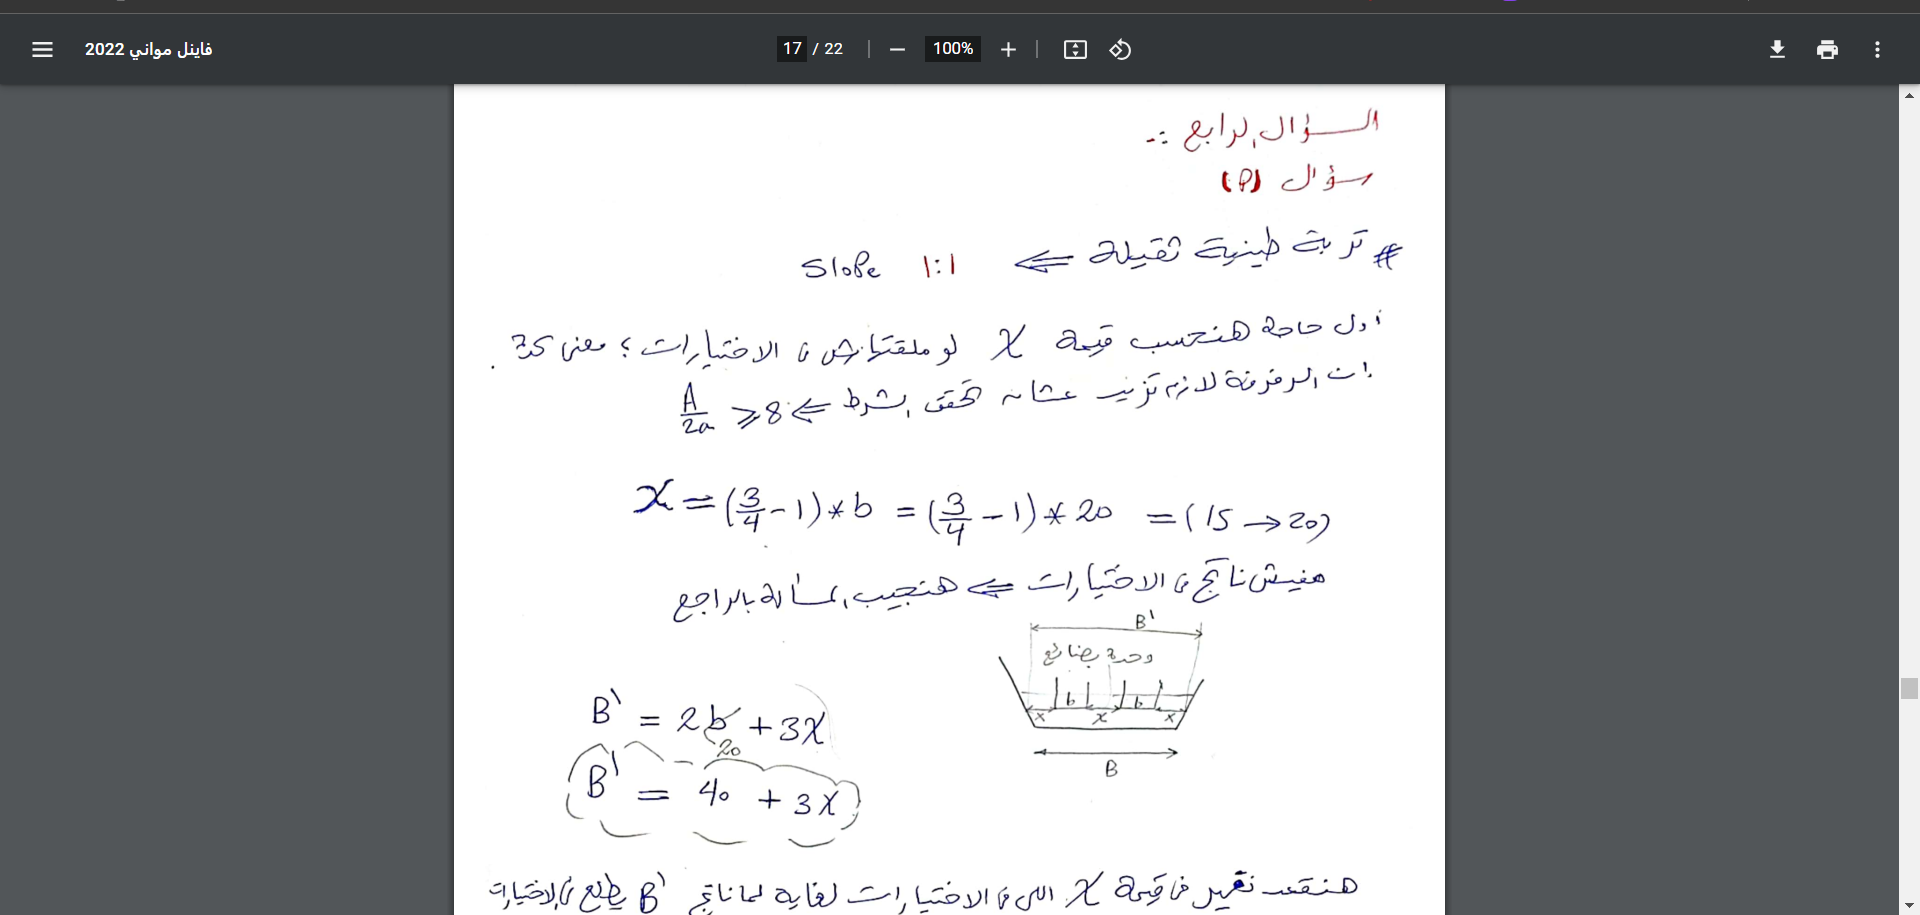 فاينل مواني 2022
17 / 22
100%
السؤال الرابع :-
سؤال (P)
# تربة طينية ثقيلة ⇐ Slope 1:1
أول حاجة هنحسب قيمة X لو ملقتهاش فى الاختيارات ؛ معنى كدة
ان الرفرفة لازم تزيد عشان تحقق الشرط ⇐ A/2a ≥ 8
X = (3/4 - 1) * b = (3/4 - 1) * 20 = (15 → 20)
مفيش ناتج فى الاختيارات ⇐ هنجيب المسألة بالراجع
B'
وحدة بضائع
b b
x x x
B
B' = 2b + 3X
20
B' = 40 + 3X
هنقعد نغير فى قيمة X اللى فى الاختيارات لغاية لما ناتج B' يطلع فى الاختيارات